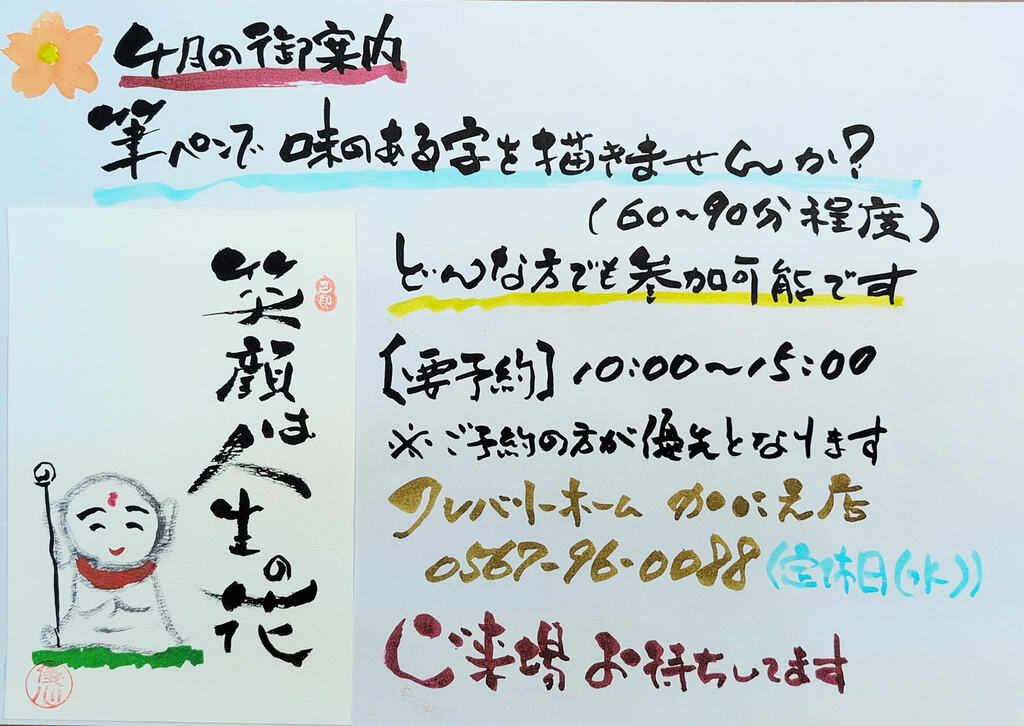 4月の御案内
筆ペンで味のある字を描きませんか?
(60~90分程度)
どんな方でも参加可能です
[要予約] 10:00~15:00
※ご予約の方が優先となります
クレバリーホーム かにえ店
0567-96-0088 (定休日(水))
ご来場お待ちしてます
笑顔は
人生の
花